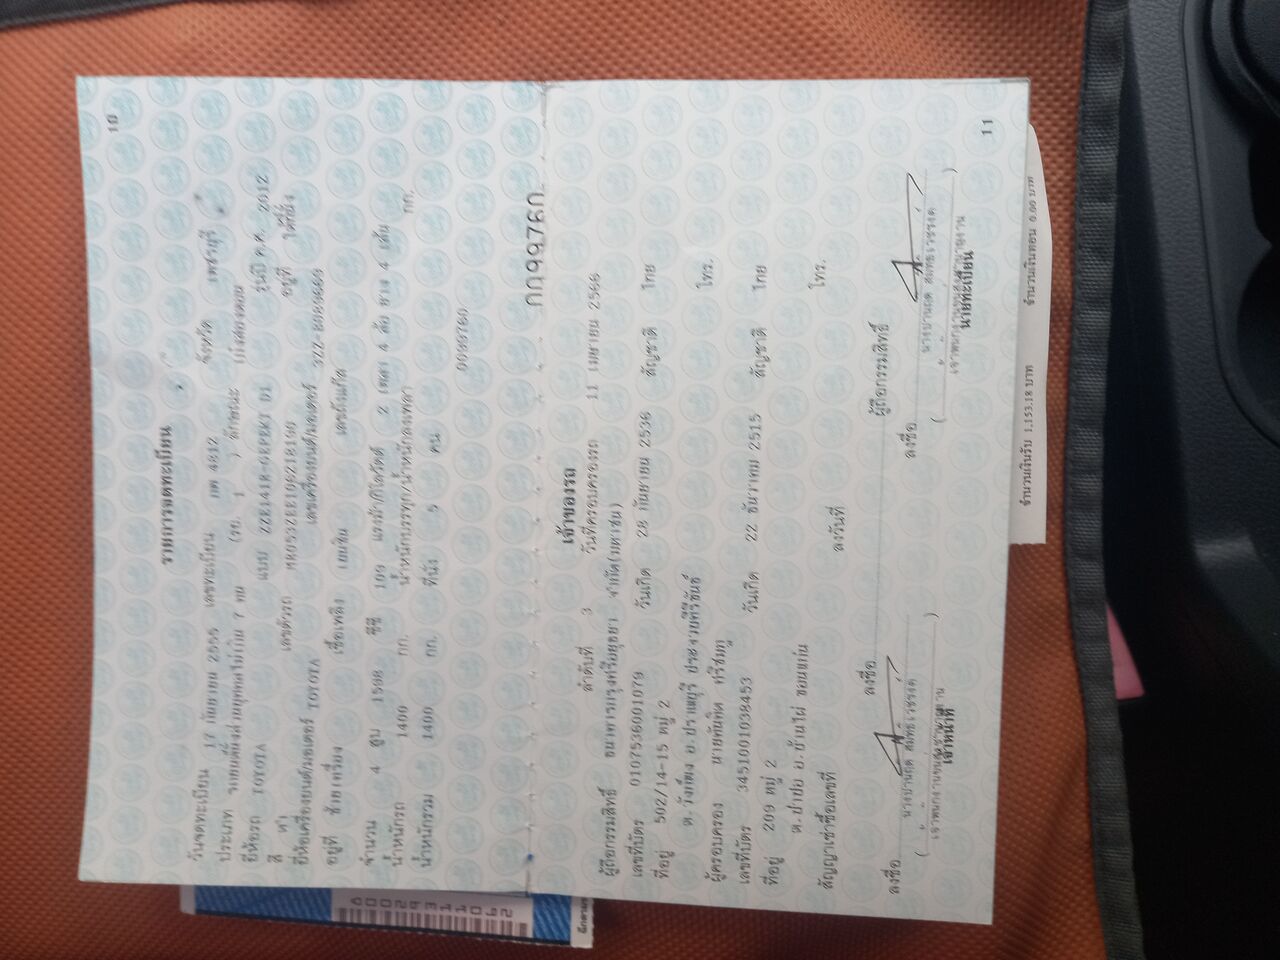 10
รายการจดทะเบียน
วันจดทะเบียน 17 กันยายน 2555 เลขทะเบียน กต 4812 จังหวัด เพชรบุรี
ประเภท รถยนต์นั่งส่วนบุคคลไม่เกิน 7 คน (รย. 1 ) ลักษณะ เก๋งสองตอน
ยี่ห้อรถ TOYOTA แบบ ZZE141R-GEPEKT D1 รุ่นปี ค.ศ. 2012
สี เทา เลขตัวรถ อยู่ที่ ใต้ที่นั่ง
ยี่ห้อเครื่องยนต์/มอเตอร์ TOYOTA เลขเครื่องยนต์/มอเตอร์
อยู่ที่ ซ้ายเครื่อง เชื้อเพลิง เบนซิน เลขถังแก๊ส
จำนวน 4 สูบ 1598 ซีซี 109 แรงม้า/กิโลวัตต์ 2 เพลา 4 ล้อ ยาง 4 เส้น
น้ำหนักรถ 1400 กก. น้ำหนักบรรทุก/น้ำหนักลงเพลา กก.
น้ำหนักรวม 1400 กก. ที่นั่ง 5 คน
0099760
กก99760
เจ้าของรถ
ลำดับที่ 3 วันที่ครอบครองรถ 11 เมษายน 2566
ผู้ถือกรรมสิทธิ์ ธนาคารกรุงศรีอยุธยา จำกัด(มหาชน)
เลขที่บัตร 0107536001079 วันเกิด 28 กันยายน 2536 สัญชาติ ไทย
ที่อยู่ 502/14-15 หมู่ 2
ต.วังก์พง อ.ปราณบุรี ประจวบคีรีขันธ์ โทร.
ผู้ครอบครอง
เลขที่บัตร 3451001038453 วันเกิด 22 ธันวาคม 2515 สัญชาติ ไทย
ที่อยู่ 209 หมู่ 2
ต.ป่าปอ อ.บ้านไผ่ ขอนแก่น โทร.
สัญญาเช่าซื้อเลขที่ ลงวันที่
ลงชื่อ ผู้ถือกรรมสิทธิ์
ลงชื่อ
ลงชื่อ
เจ้าหน้าที่
นายทะเบียน
11
จำนวนเงินรับ 1,153.18 บาท จำนวนเงินทอน 0.00 บาท